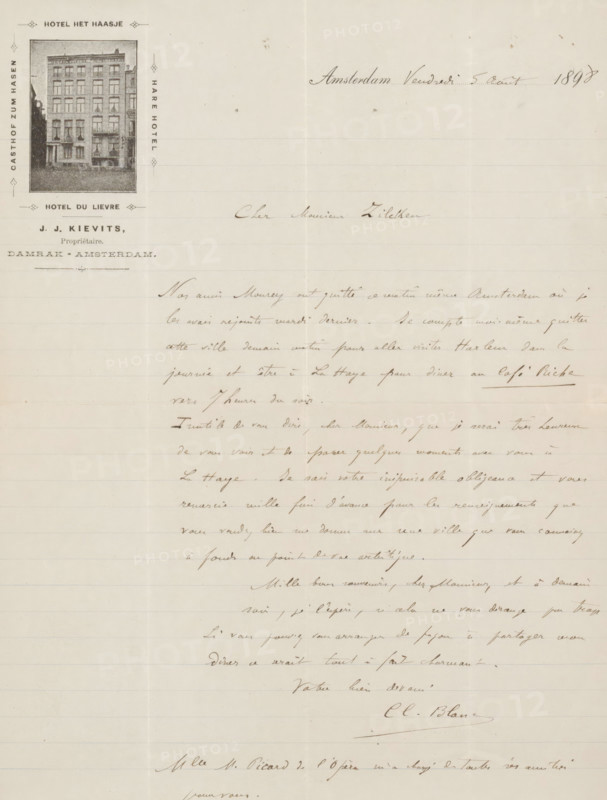 HÔTEL HET HAASJE
GASTHOF ZUM HASEN
HARE HOTEL
HOTEL DU LIEVRE
J. J. KIEVITS,
Propriétaire.
DAMRAK - AMSTERDAM.
Amsterdam Vendredi 5 Août 1898
Cher Monsieur Zilcken
Nos amis Mourey ont quitté ce matin même Amsterdam où je
les avais rejoints mardi dernier. Je compte moi-même quitter
cette ville demain matin pour aller visiter Harlem dans la
journée et être à La Haye pour diner au Café Riche
vers 7 heures du soir.
Inutile de vous dire, cher Monsieur, que je serai très heureux
de vous voir et de passer quelques moments avec vous à
La Haye. Je sais votre inépuisable obligeance et vous
remercie mille fois d'avance pour les renseignements que
vous voudrez bien me donner sur cette ville que vous connaissez
à fond au point de vue artistique.
Mille bons souvenirs, cher Monsieur, et à demain
soir, je l'espère, si cela ne vous dérange pas trop.
Si vous pouviez vous arranger de façon à partager mon
diner ce serait tout à fait charmant.
Votre bien dévoué
Mlle M. Picard de l'Opéra m'a chargé de toutes ses amitiés
pour vous.
PHOTO12